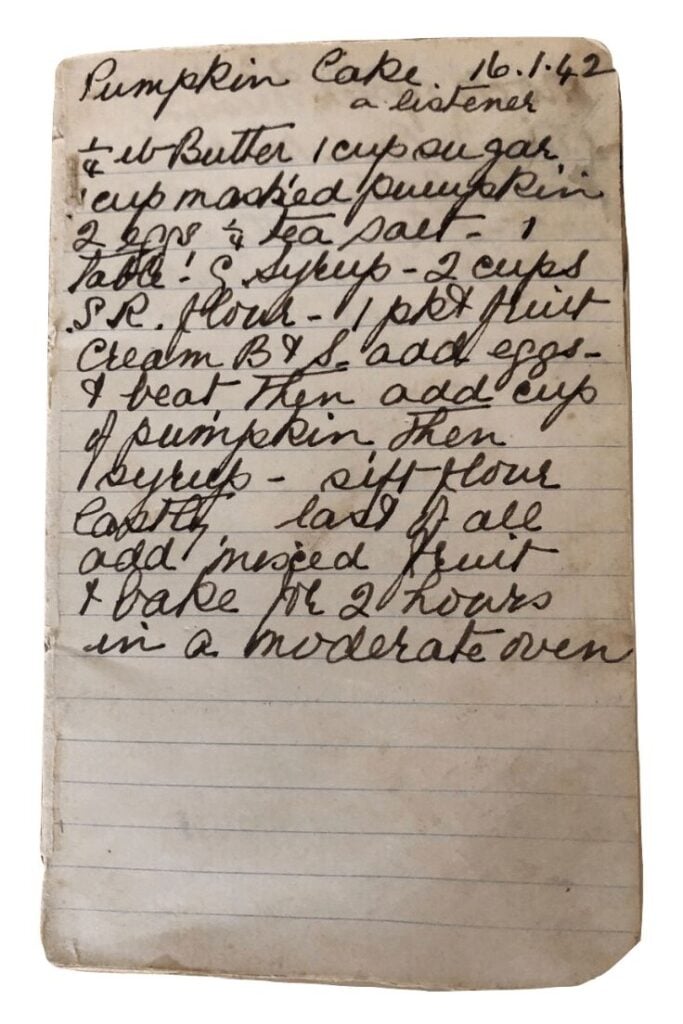 Pumpkin Cake. 16.1.42
a listener
¼ lb Butter 1 cup sugar
1 cup mashed pumpkin
2 eggs ¼ tea salt - 1
Table! G. Syrup - 2 cups
S.R. flour - 1 pkt fruit
Cream B & S. add eggs -
& beat, Then add cup
of pumpkin Then
1 syrup - sift flour
lastly, last of all
add mixed fruit
& bake for 2 hours
in a moderate oven